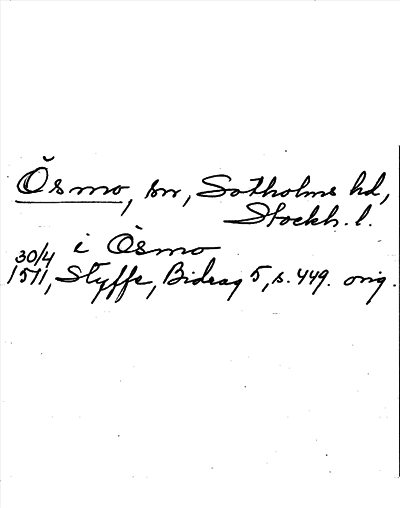 Ösmo, sn, Sotholms hd,
Stockh. l.
i Ösmo
30/4
1511, Styffe, Bidrag 5, s. 449. orig.